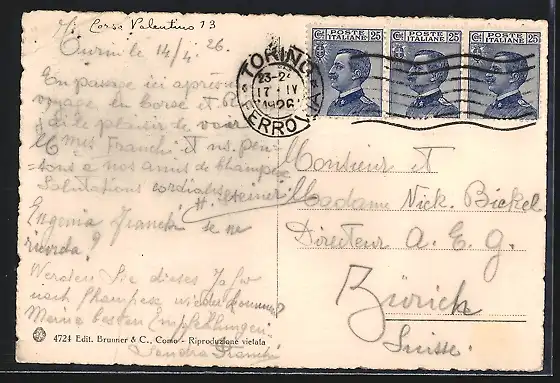 Corso Valentino 13
Turin le 14/4 26.
En passage ici après un
voyage en Corse et
le plaisir de voir
Mmes Franchi et ns. pen-
sons à nos amis de Champex
Salutations cordiales
H. Steiner
Eugenia Franchi se ne
ricorda?
Werden Sie dieses Jahr
nach Champex wieder kommen?
Meine besten Empfehlungen
Sandra Franchi
4724 Edit. Brunner & C., Como - Riproduzione vietata
TORINO
23-24
17 · IV
1926
FERROVIA
Cent. POSTE ITALIANE 25
Cent. POSTE ITALIANE 25
Cent. POSTE ITALIANE 25
Monsieur et
Madame Nick. Bickel
Directeur A. E. G.
Zürich
Suisse.